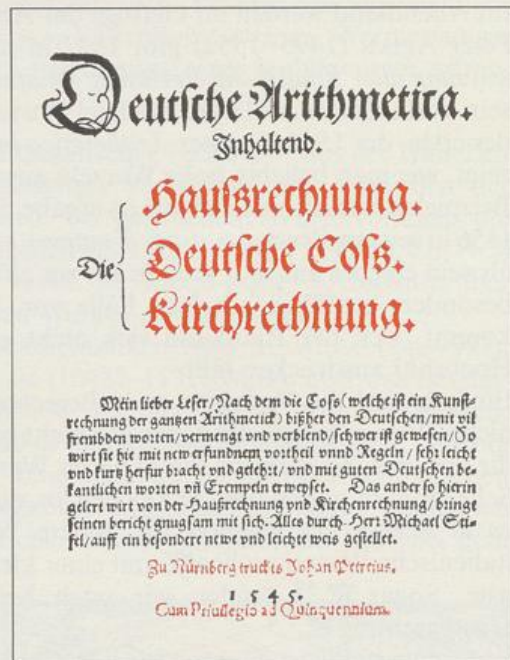 Deutsche Arithmetica.
Inhaltend.
Die
Haussrechnung.
Deutsche Coss.
Kirchrechnung.
Mein lieber Leser/Nach dem die Coss (welche ist ein Kunst-
rechnung der gantzen Arithmetick) bißher den Deutschen/mit vil
frembden worten/vermengt vnd verblend/schwer ist gewesen/So
wirt sie hie mit new erfundnem vortheil vnnd Regeln/sehr leicht
vnd kurtz herfur bracht vnd gelehrt/vnd mit guten Deutschen be-
kantlichen worten vñ Exempeln erweyset. Das ander so hierin
gelert wirt von der Haußrechnung vnd Kirchenrechnung/bringt
seinen bericht gnugsam mit sich. Alles durch Herr Michael Sti-
fel/auff ein besondere newe vnd leichte weis gestellet.
Zu Nürnberg truckts Johan Petreius.
1545.
Cum Priuilegio ad Quinquennium.